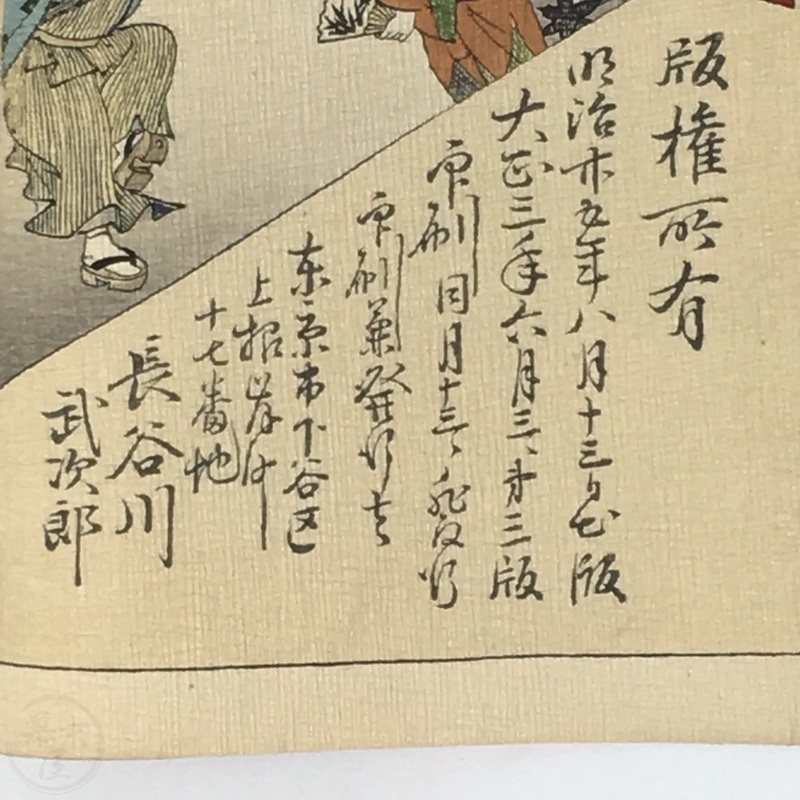 版権所有
明治廿五年八月十三日出版
大正三年六月三、第三版
印刷同月十三、発行
印刷兼発行者
東京市下谷区
上根岸町
十七番地
長谷川
武次郎